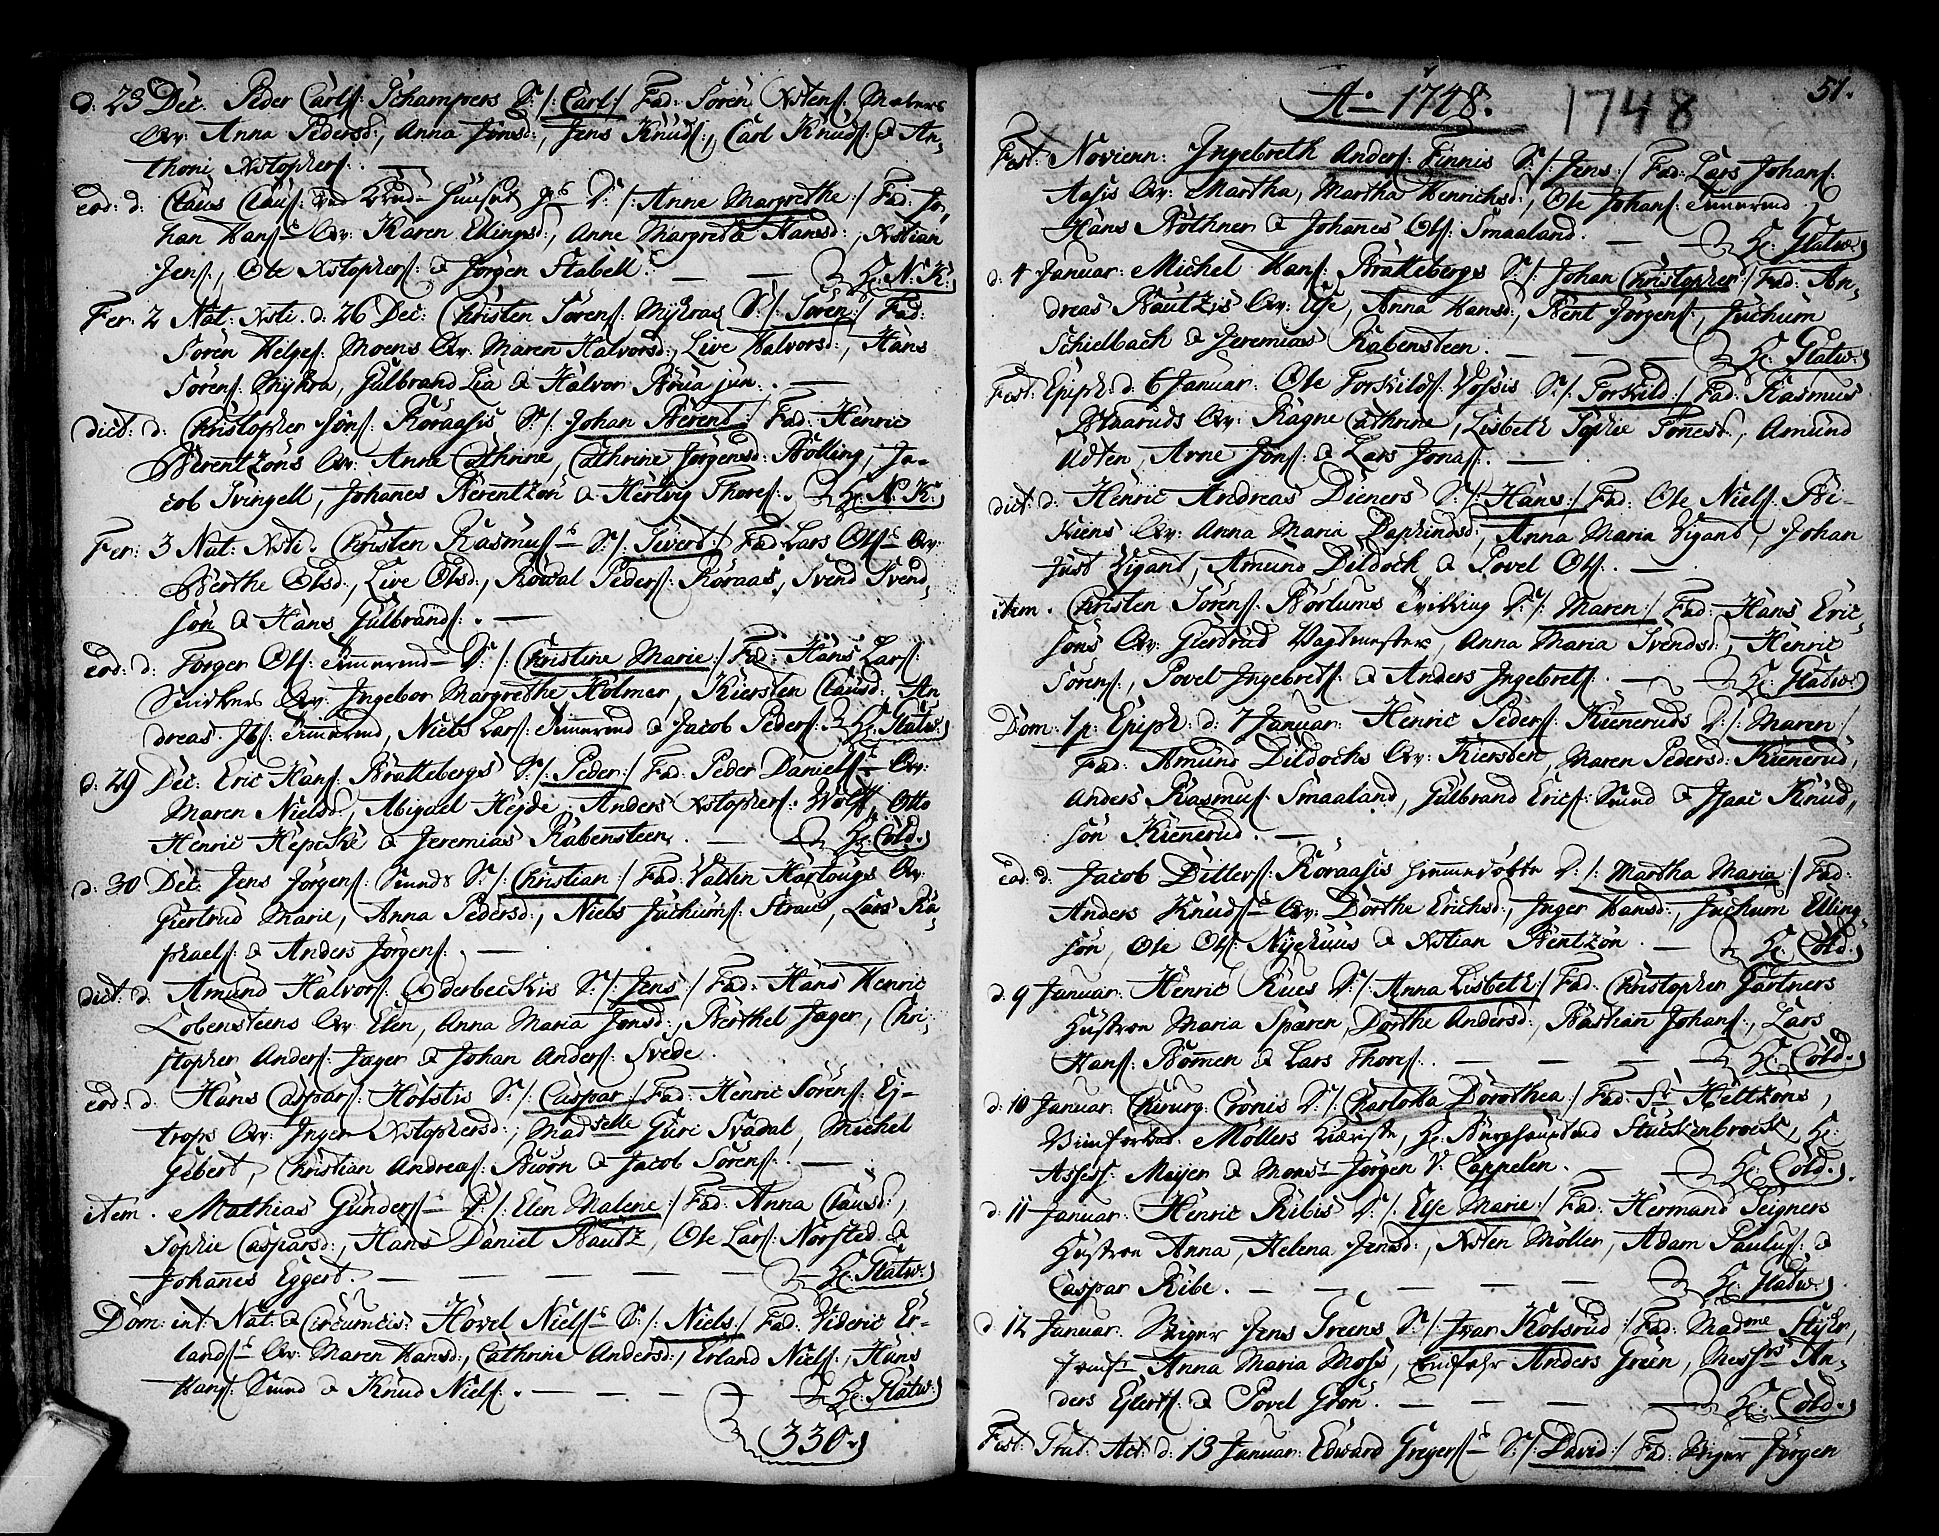 d: 23 Dec. Peder Carls: Schampers S: /: Carl :/ Fad: Sören Xstens: Malers
Qv: Anna Pedersd:, Anna Jonsd:, Jens Knuds:, Carl Knuds: & An-
thoni Xstophers:
eod: d: Claus Claus: S: /: Anne Margrethe :/ Fad: Jo-
han Hans: Qv: Karen Ellingsd:, Anne Margreta Hansd:, Xstian
Jens:, Ole Xstophers: & Jörgen Stabell. Hr: N. K:
Fer: 2 Nat: Xsti. d: 26 Dec: Christen Sörens: Myhras S: /: Sören :/ Fad:
Sören Helges: Moens Qv: Maren Halvorsd:, Live Halvorsd:, Hans
Sörens: Myhra, Gulbrand Lia & Halvor Roua jun:
dict: d: Christopher Jöns: Koraasis S: /: Johan Berend :/ Fad: Henric
Berentzöns Qv: Anne Cathrine, Cathrine Jörgensd: Bölling, Ja-
cob Svingell, Johanes Berentzön & Hertvig Thores: Hr: N. K:
Fer: 3 Nat: Xsti. Christen Rasmus: S: /: Sivert :/ Fad: Lars Ols: Qv:
Berthe Olsd:, Live Olsd:, Roval Peders: Koraas, Svend Svend-
sön & Hans Gulbrands:
eod: d: Törger Ols: Timermd S: /: Christine Marie :/ Fad: Hans Lars:
Snidkers Qv: Ingebor Margrethe Holmer, Kiersten Clausd: An
dreas Jbs: Timermd, Niels Lars: Timermd & Jacob Peders: Hr: Flatw:
d: 29 Dec. Eric Hans: Brattebergs S: /: Peder :/ Fad: Peder Daniels: Qv:
Maren Nielsd:, Abigael Hejde, Anders Xstophers: Wolff, Otto
Henric Hepcke & Jeremias Rabensteen. Hr: Cold.
d: 30 Dec. Jens Jörgens: Smeds S: /: Christian :/ Fad: Valtin Hartougs Qv:
Giertrud Marie, Anna Pedersd:, Niels Juchums: Straus, Lars Ra-
phaels: & Anders Jörgens:
dict: d: Amund Halvors: Oderbeckis S: /: Jens :/ Fad: Hans Henric
Lobensteens Qv: Elen, Anna Maria Jonsd:, Berthel Jæger, Chri-
stopher Anders: Jæger & Johan Anders: Svede.
eod: d: Hans Caspars: Holstis S: /: Caspar :/ Fad: Henric Sörens: Ej-
trops Qv: Inger Xstophersd:, Madselle Guri Svadal, Michel
Gebert, Christian Andreas: Biorn & Jacob Sörens:
item. Mathias Gunders: S: /: Elen Malene :/ Fad: Anna Clausd:,
Sophie Casparsd:, Hans Daniel Bautz, Ole Lars: Norsted &
Johanes Eggert. Hr: Flatw:
Dom: int: Nat: & Circumcis: Hovel Niels: S: /: Niels :/ Fad: Videric Er-
lands: Qv: Maren Hansd:, Cathrine Andersd:, Erland Niels:, Hans
Hans: Smed & Knud Niels: Hr: Flatw:
330.
57.
Ao 1748. 1748
Fest: Novienn: Ingebreth Anders: Finnis S: /: Jens :/ Fad: Lars Johans:
Aasis Qv: Martha, Martha Henrichsd:, Ole Johans: Timermd
Hans Böthner & Johanes Ols: Smaaland. Hr: Flatw:
d: 4 Januar: Michel Hans: Brattebergs S: /: Johan Christopher :/ Fad: An-
dreas Bautzis Qv: Else, Anna Hansd:, Bent Jörgens:, Juchum
Schielbach & Jeremias Rabensteen. Hr: Flatw:
Fest: Epiph: d: 6 Januar: Ole Torkilds: Vossis S: /: Torkild :/ Fad: Rasmus
Blaaruds Qv: Ragne Cathrine, Lisbeth Sophie Tonesd:, Amund
Udten, Arne Jöns: & Lars Jonas:
dict: d: Henric Andreas Dieners S: /: Hans :/ Fad: Ole Niels: Be-
kiens Qv: Anna Maria Daphindsd:, Anna Maria Vigand, Johan
Just Vigant, Amund Dildoch & Povel Ols:
item. Christen Sörens: Börlums Tvilling S: /: Maren :/ Fad: Hans Eric-
söns Qv: Giertrud Vagtmester, Anna Maria Svendsd:, Henric
Sörens:, Povel Ingebrets: & Anders Ingebrets: Hr: Flatw:
Dom: 1 p: Epiph: d: 7 Januar: Henric Peders: Kieneruds S: /: Maren :/
Fad: Amund Dildochs Qv: Kiersten, Maren Pedersd: Kienerud,
Anders Rasmus: Smaaland, Gulbrand Erics: Smed & Isaac Knud-
sön Kienerud.
eod: d: Jacob Ditlevs: Koraasis S: /: Martha Maria :/ Fad:
Anders Knuds: Qv: Dorthe Erichsd:, Inger Hansd:, Juchum Elling-
sön, Ole Ols: Nyehuus & Xstian Bentzön. Hr: Cold.
d: 9 Januar: Henric Kues S: /: Anna Lisbeth :/ Fad: Christopher Gartners
Hustroe Maria Sparen, Dorthe Andersd:, Bastian Johans:, Lars
Hans: Bömen & Lars Thores: Hr: Cold.
d: 10 Januar: Chirurg: Cronis S: /: Charlotta Dorothea :/ Fad: Sr Heltzöns,
Möllers Kiereste, Hr: Berghauptmd Stuckenbrock, Hr:
Assess: Meyer & Monsr Jörgen V. Cappelen. Hr: Cold.
d: 11 Januar: Henric Ribis S: /: Else Marie :/ Fad: Hermand Seigners
Hustroe Anna, Helena Jensd:, Xsten Möller, Adam Paulus: &
Caspar Ribe. Hr: Flatw:
d: 12 Januar. Jens Greens S: /: Ivar Kolsrud :/ Fad: Madme Styhr,
Jomfr Anna Maria Moss, Anders Green, Messrs An-
ders Ejlerts: & Povel Grön. Hr: Cold.
Fest: Grat: Act: d: 13 Januar: Edward Gregers: S: /: David :/ Fad: Jörgen